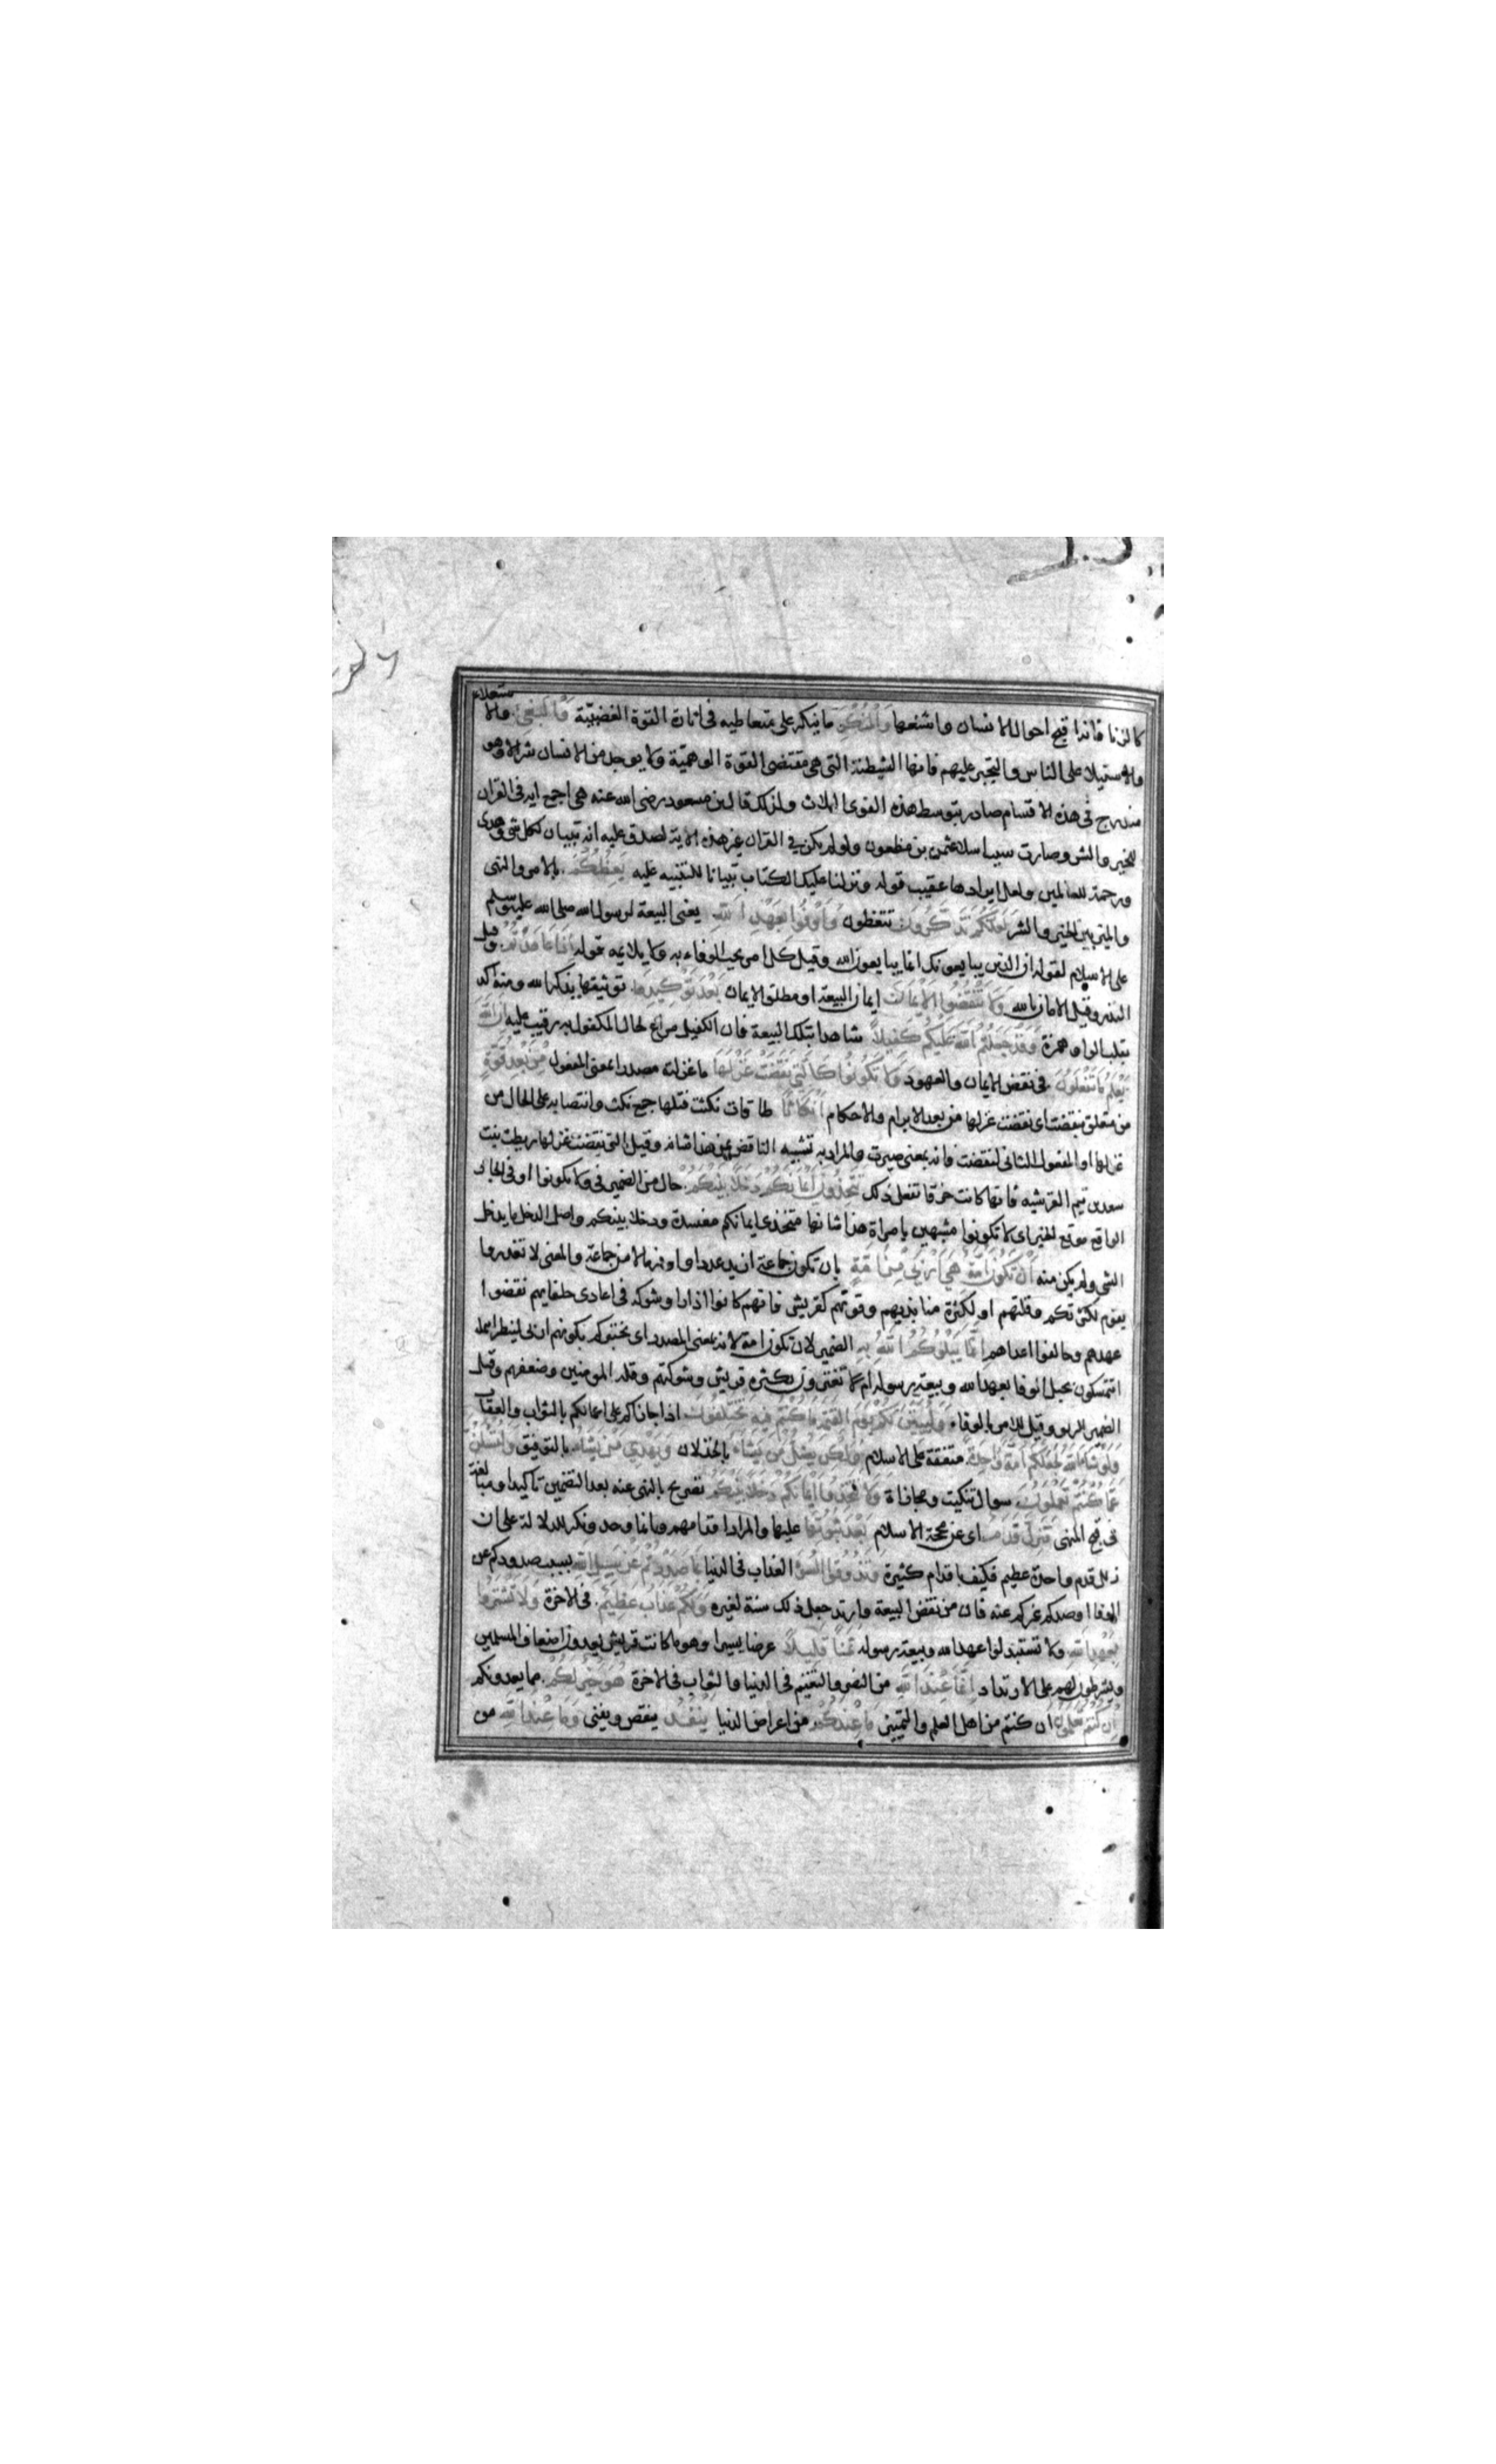 كالزنا فانه اقبح احوال الانسان واشنعها وَالْمُنْكَرِ ما ينكر على متعاطيه فى اثارة القوة الغضبيّة وَالْبَغْيِ والاستعلاء
والاستيلاء على الناس والتجبر عليهم فانها الشيطنة التى هى مقتضى القوة الوهميّة ولا يوجد من الانسان شر الا وهو
مندرج فى هذه الاقسام صادر بتوسط هذه القوى الثلاث ولذلك قال بن مسعود رضى الله عنه هى اجمع ايه فى القران
للخير والشر وصارت سببا سلام عثمن بن مظعون ولو لم يكن فى القران غير هذه الاية لصدق عليه انه تبيان لكل شى وهدى
ورحمة للعالمين ولعل ايرادها عقيب قوله ونزلنا عليك الكتاب تبيانا للتنبيه عليه يَعِظُكُمْ بالامر والنهى
والميز بين الخير والشر لَعَلَّكُمْ تَذَكَّرُونَ تتعظون وَأَوْفُوا بِعَهْدِ اللَّهِ يعنى البيعة لرسول الله صلى الله عليه وسلم
على الاسلام لقوله ان الذين يبايعونك انما يبايعون الله وقيل كل امر يجب الوفاء به ولا يلائمه قوله إِذَا عَاهَدْتُمْ وقيل
النذر وقيل الايمان بالله وَلَا تَنْقُضُوا الْأَيْمَانَ ايمان البيعة او مطلق الايمان بَعْدَ تَوْكِيدِهَا توثيقها بذكر الله ومنه اكد
بقلب الواو همزة وَقَدْ جَعَلْتُمُ اللَّهَ عَلَيْكُمْ كَفِيلًا شاهدا بتلك البيعة فان الكفيل مراع لحال المكفول به رقيب عليه إِنَّ اللَّهَ
يَعْلَمُ مَا تَفْعَلُونَ فى نقض الايمان والعهود وَلَا تَكُونُوا كَالَّتِي نَقَضَتْ غَزْلَهَا ما غزلته مصدر بمعنى المفعول مِنْ بَعْدِ قُوَّةٍ
من متعلق بنقضت اى نقضت غزلها من بعد الابرام والاحكام أَنْكَاثًا طاقات نكثت فتلها جمع نكث وانتصابه على الحال من
غزلها او المفعول الثانى لنقضت فانه بمعنى صيرت والمراد به تشبيه الناقض بمن هذا شانه وقيل التى نقضت غزلها ريطة بنت
سعد بن تيم القرشيه فانها كانت خرقا تفعل ذلك تَتَّخِذُونَ أَيْمَانَكُمْ دَخَلًا بَيْنَكُمْ حال من الضمير فى ولا تكونوا او فى الجار
الواقع موقع الخبر اى لا تكونوا مشبهين بامراة هذا شانها متخذى ايمانكم مفسدة ودخلا بينكم واصل الدخل ما يدخل
الشى ولم يكن منه أَنْ تَكُونَ أُمَّةٌ هِيَ أَرْبَى مِنْ أُمَّةٍ بان تكون جماعة ازيد عددا واوفر مالا من جماعة والمعنى لا تغدروا
بقوم لكثرتكم وقلتهم او لكثرة منابذيهم وقوتهم كقريش فانهم كانوا اذا راوا شوكه فى اعادى حلفايهم نقضوا
عهدهم وحالفوا اعداهم إِنَّمَا يَبْلُوكُمُ اللَّهُ بِهِ الضمير لان تكون امة لانه بمعنى المصدر اى يختبركم بكونهم اربى لينظر
اتتمسكون بحبل الوفا بعهد الله وبيعة رسوله ام تغترون بكثرة قريش وشوكتهم وقلة المومنين وضعفهم وقيل
الضمير للربو وقيل للامر بالوفاء وَلَيُبَيِّنَنَّ لَكُمْ يَوْمَ الْقِيَمَةِ مَا كُنْتُمْ فِيهِ تَخْتَلِفُونَ اذا جازاكم على اعمالكم بالثواب والعقاب
وَلَوْ شَاءَ اللَّهُ لَجَعَلَكُمْ أُمَّةً وَاحِدَةً متفقة على الاسلام وَلَكِنْ يُضِلُّ مَنْ يَشَاءُ بالخذلان وَيَهْدِي مَنْ يَشَاءُ بالتوفيق وَلَتُسْئَلُنَّ
عَمَّا كُنْتُمْ تَعْمَلُونَ سوال تبكيت ومجازاة وَلَا تَتَّخِذُوا أَيْمَانَكُمْ دَخَلًا بَيْنَكُمْ تصريح بالنهى عنه بعد التضمين تاكيدا ومبالغة
فى قبح المنهى فَتَزِلَّ قَدَمٌ اى عن محجة الاسلام بَعْدَ ثُبُوتِهَا عليها والمراد اقدامهم وانما وحد ونكر للدلالة على ان
زلل قدم واحدة عظيم فكيف باقدام كثيرة وَتَذُوقُوا السُّوءَ العذاب فى الدنيا بِمَا صَدَدْتُمْ عَنْ سَبِيلِ اللَّهِ بسبب صدودكم عن
الوفا او صدكم غيركم عنه فان من نقض البيعة وارتد جعل ذلك سنة لغيره وَلَكُمْ عَذَابٌ عَظِيمٌ فى الاخرة وَلَا تَشْتَرُوا
بِعَهْدِ اللَّهِ ولا تستبدلوا عهد الله وبيعة رسوله ثَمَنًا قَلِيلًا عرضا يسيرا وهو ما كانت قريش يعدون لضعاف المسلمين
ويشترطون لهم على الارتداد إِنَّمَا عِنْدَ اللَّهِ من النصر والتغنيم فى الدنيا والثواب فى الاخرة هُوَ خَيْرٌ لَكُمْ مما يعدونكم
إِنْ كُنْتُمْ تَعْلَمُونَ ان كنتم من اهل العلم والتمييز مَا عِنْدَكُمْ من اعراض الدنيا يَنْفَدُ ينقص ويفنى وَمَا عِنْدَ اللَّهِ من